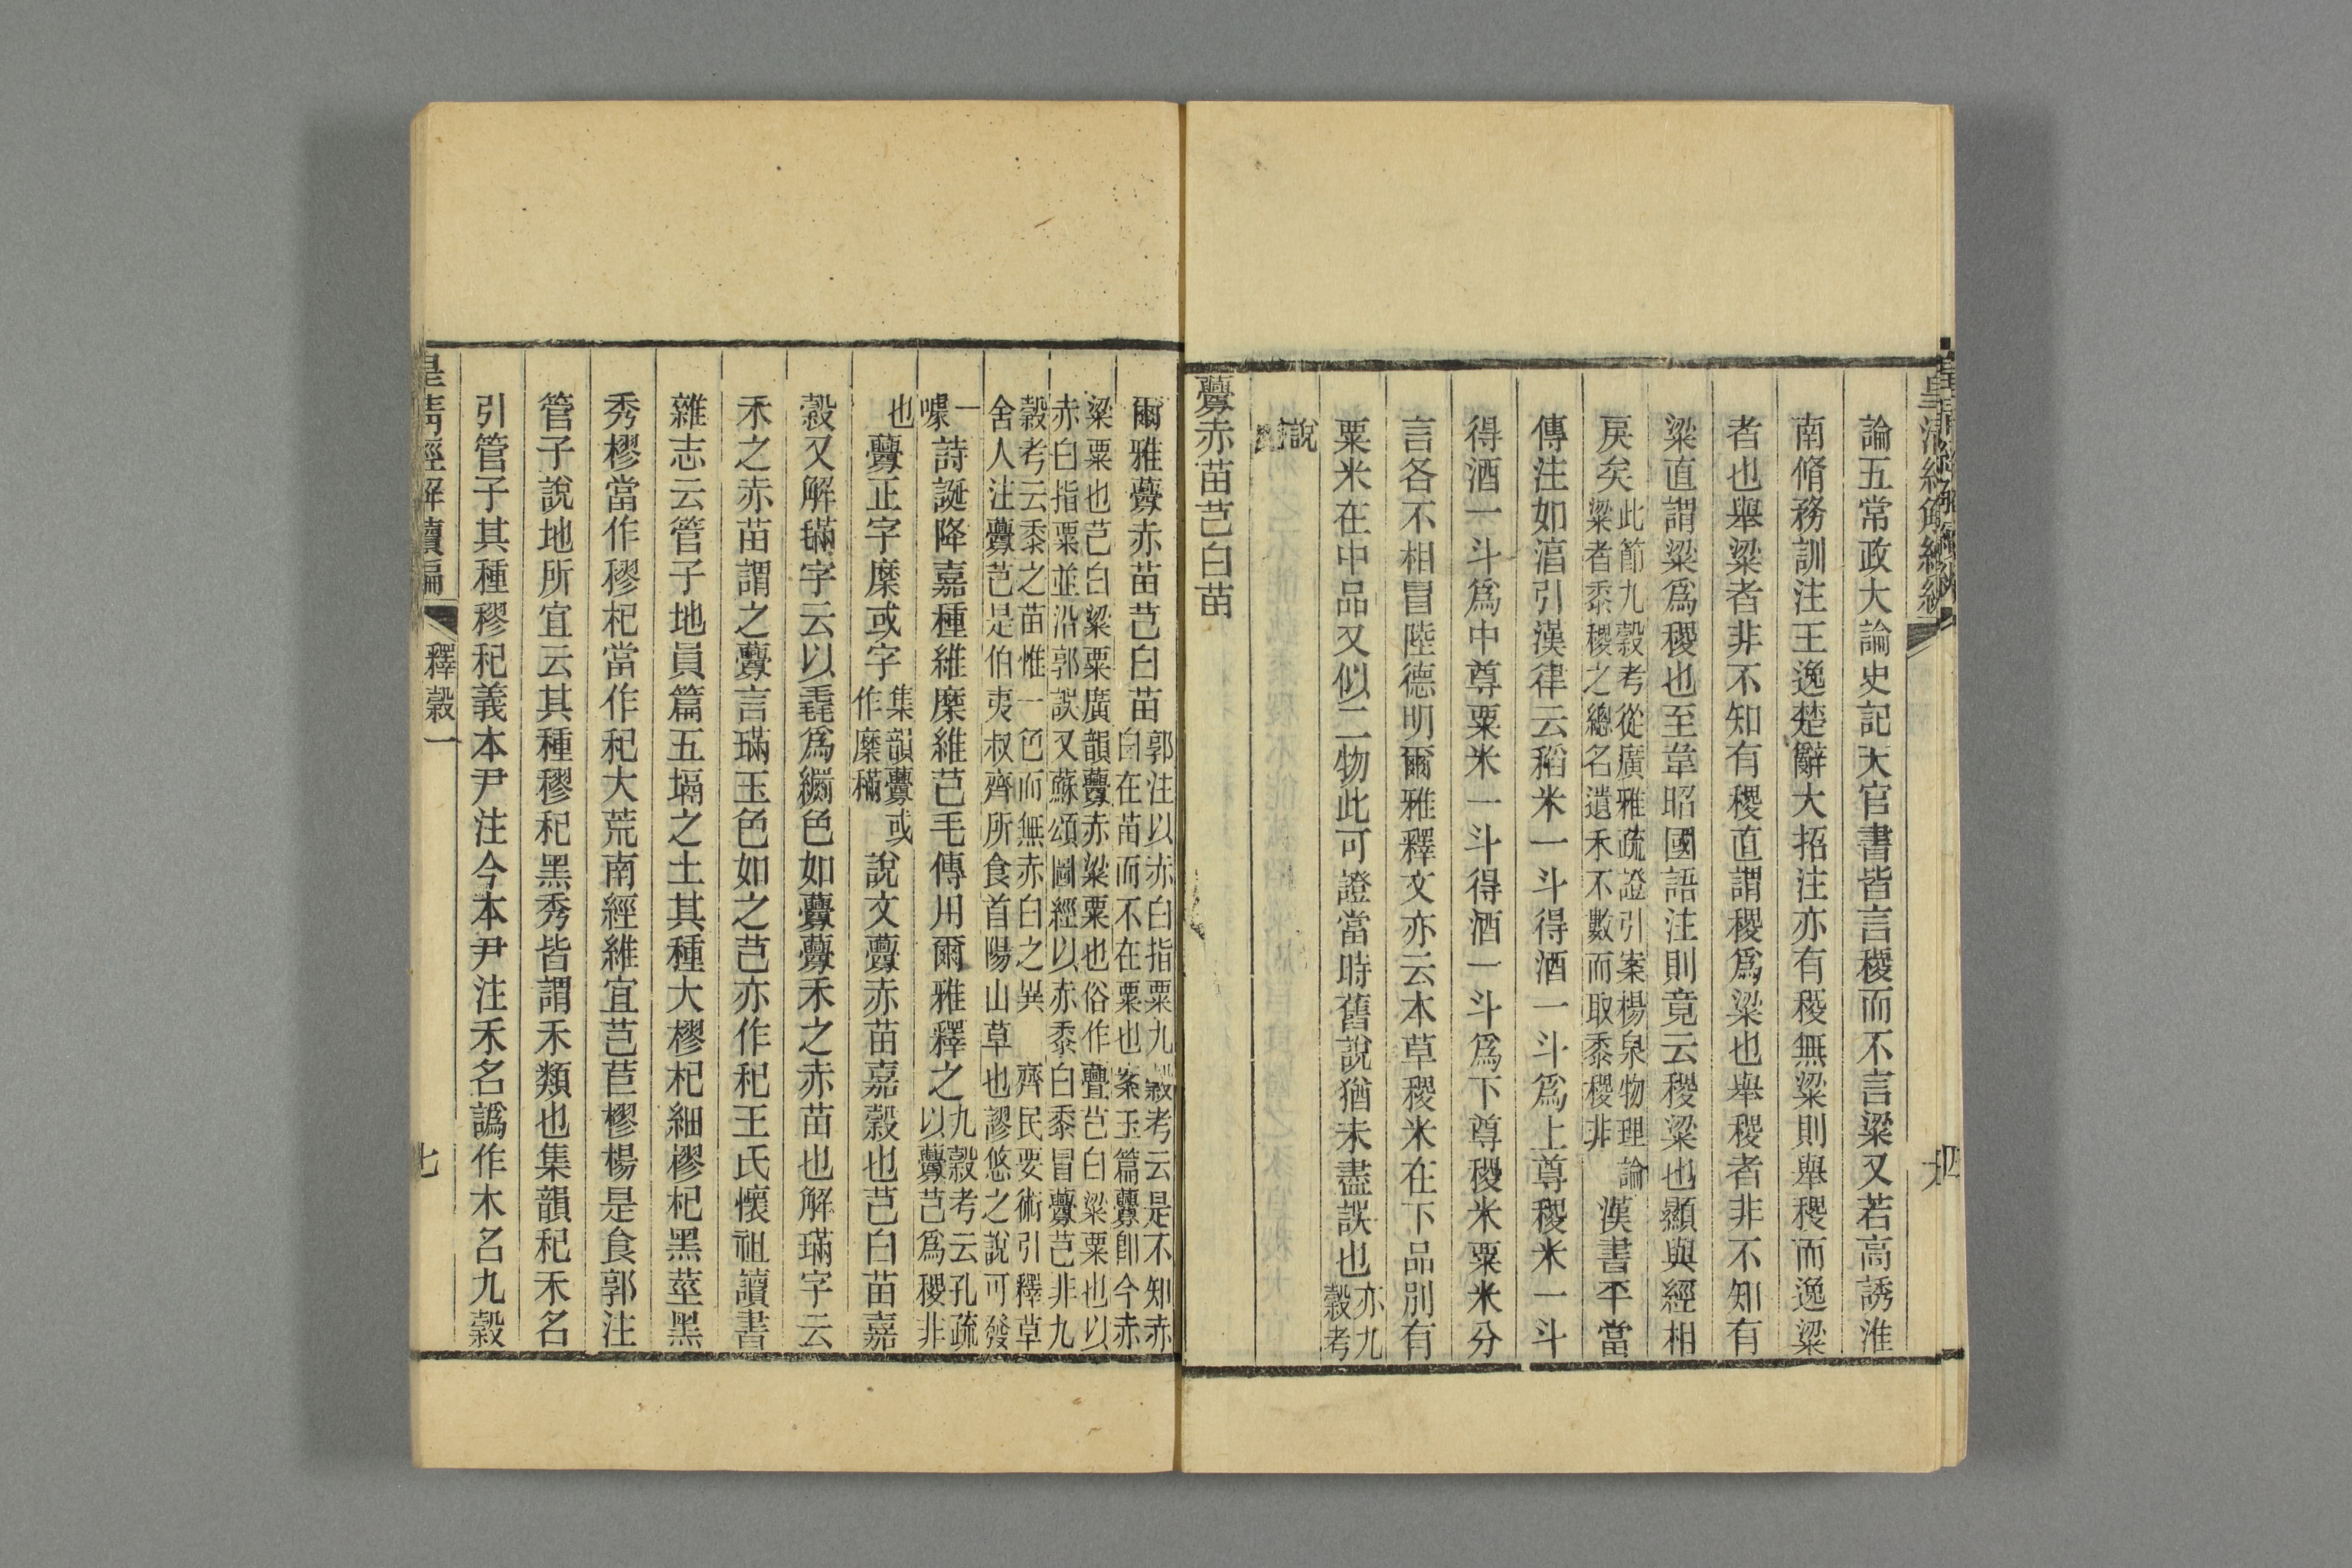 論五常政大論史記天官書皆言稷而不言粱又若高誘淮
南脩務訓注王逸楚辭大招注亦有稷無粱則舉稷而逸粱
者也舉粱者非不知有稷直謂稷爲粱也舉稷者非不知有
粱直謂粱爲稷也至韋昭國語注則竟云稷粱也顯與經相
戾矣此節九穀考從廣雅疏證引案楊泉物理論粱者黍稷之總名遺禾不數而取黍稷非漢書平當
傳注如湻引漢律云稻米一斗得酒一斗爲上尊稷米一斗
得酒一斗爲中尊粟米一斗得酒一斗爲下尊稷米粟米分
言各不相冒陸德明爾雅釋文亦云本草稷米在下品別有
粟米在中品又似二物此可證當時舊說猶未盡誤也亦九穀考
說
虋赤苗芑白苗
爾雅虋赤苗芑白苗郭注以赤白指粟九穀考云是不知赤白在苗而不在粟也案玉篇虋卽今赤
粱粟也芑白粱粟廣韻虋赤粱粟也俗作亹芑白粱粟也以赤白指粟並沿郭誤又蘇頌圖經以赤黍白黍冒虋芑非九
穀考云黍之苗惟一色而無赤白之異齊民要術引釋草舍人注虋芑是伯夷叔齊所食首陽山草也謬悠之說可發
一噱詩誕降嘉種維穈維芑毛傳用爾雅釋之九穀考云孔疏以虋芑爲稷非
也虋正字穈或字集韻虋或作穈䅼說文虋赤苗嘉穀也芑白苗嘉
穀又解璊字云以毳爲繝色如虋虋禾之赤苗也解璊字云
禾之赤苗謂之虋言璊玉色如之芑亦作秜王氏懷祖讀書
雜志云管子地員篇五塥之土其種大樛杞細樛杞黑莖黑
秀樛當作穋杞當作秜大荒南經維宜芑苣樛楊是食郭注
管子說地所宜云其種穋秜黑秀皆謂禾類也集韻秜禾名
引管子其種穋秜義本尹注今本尹注禾名譌作木名九穀
皇清經解續編 釋穀一 七